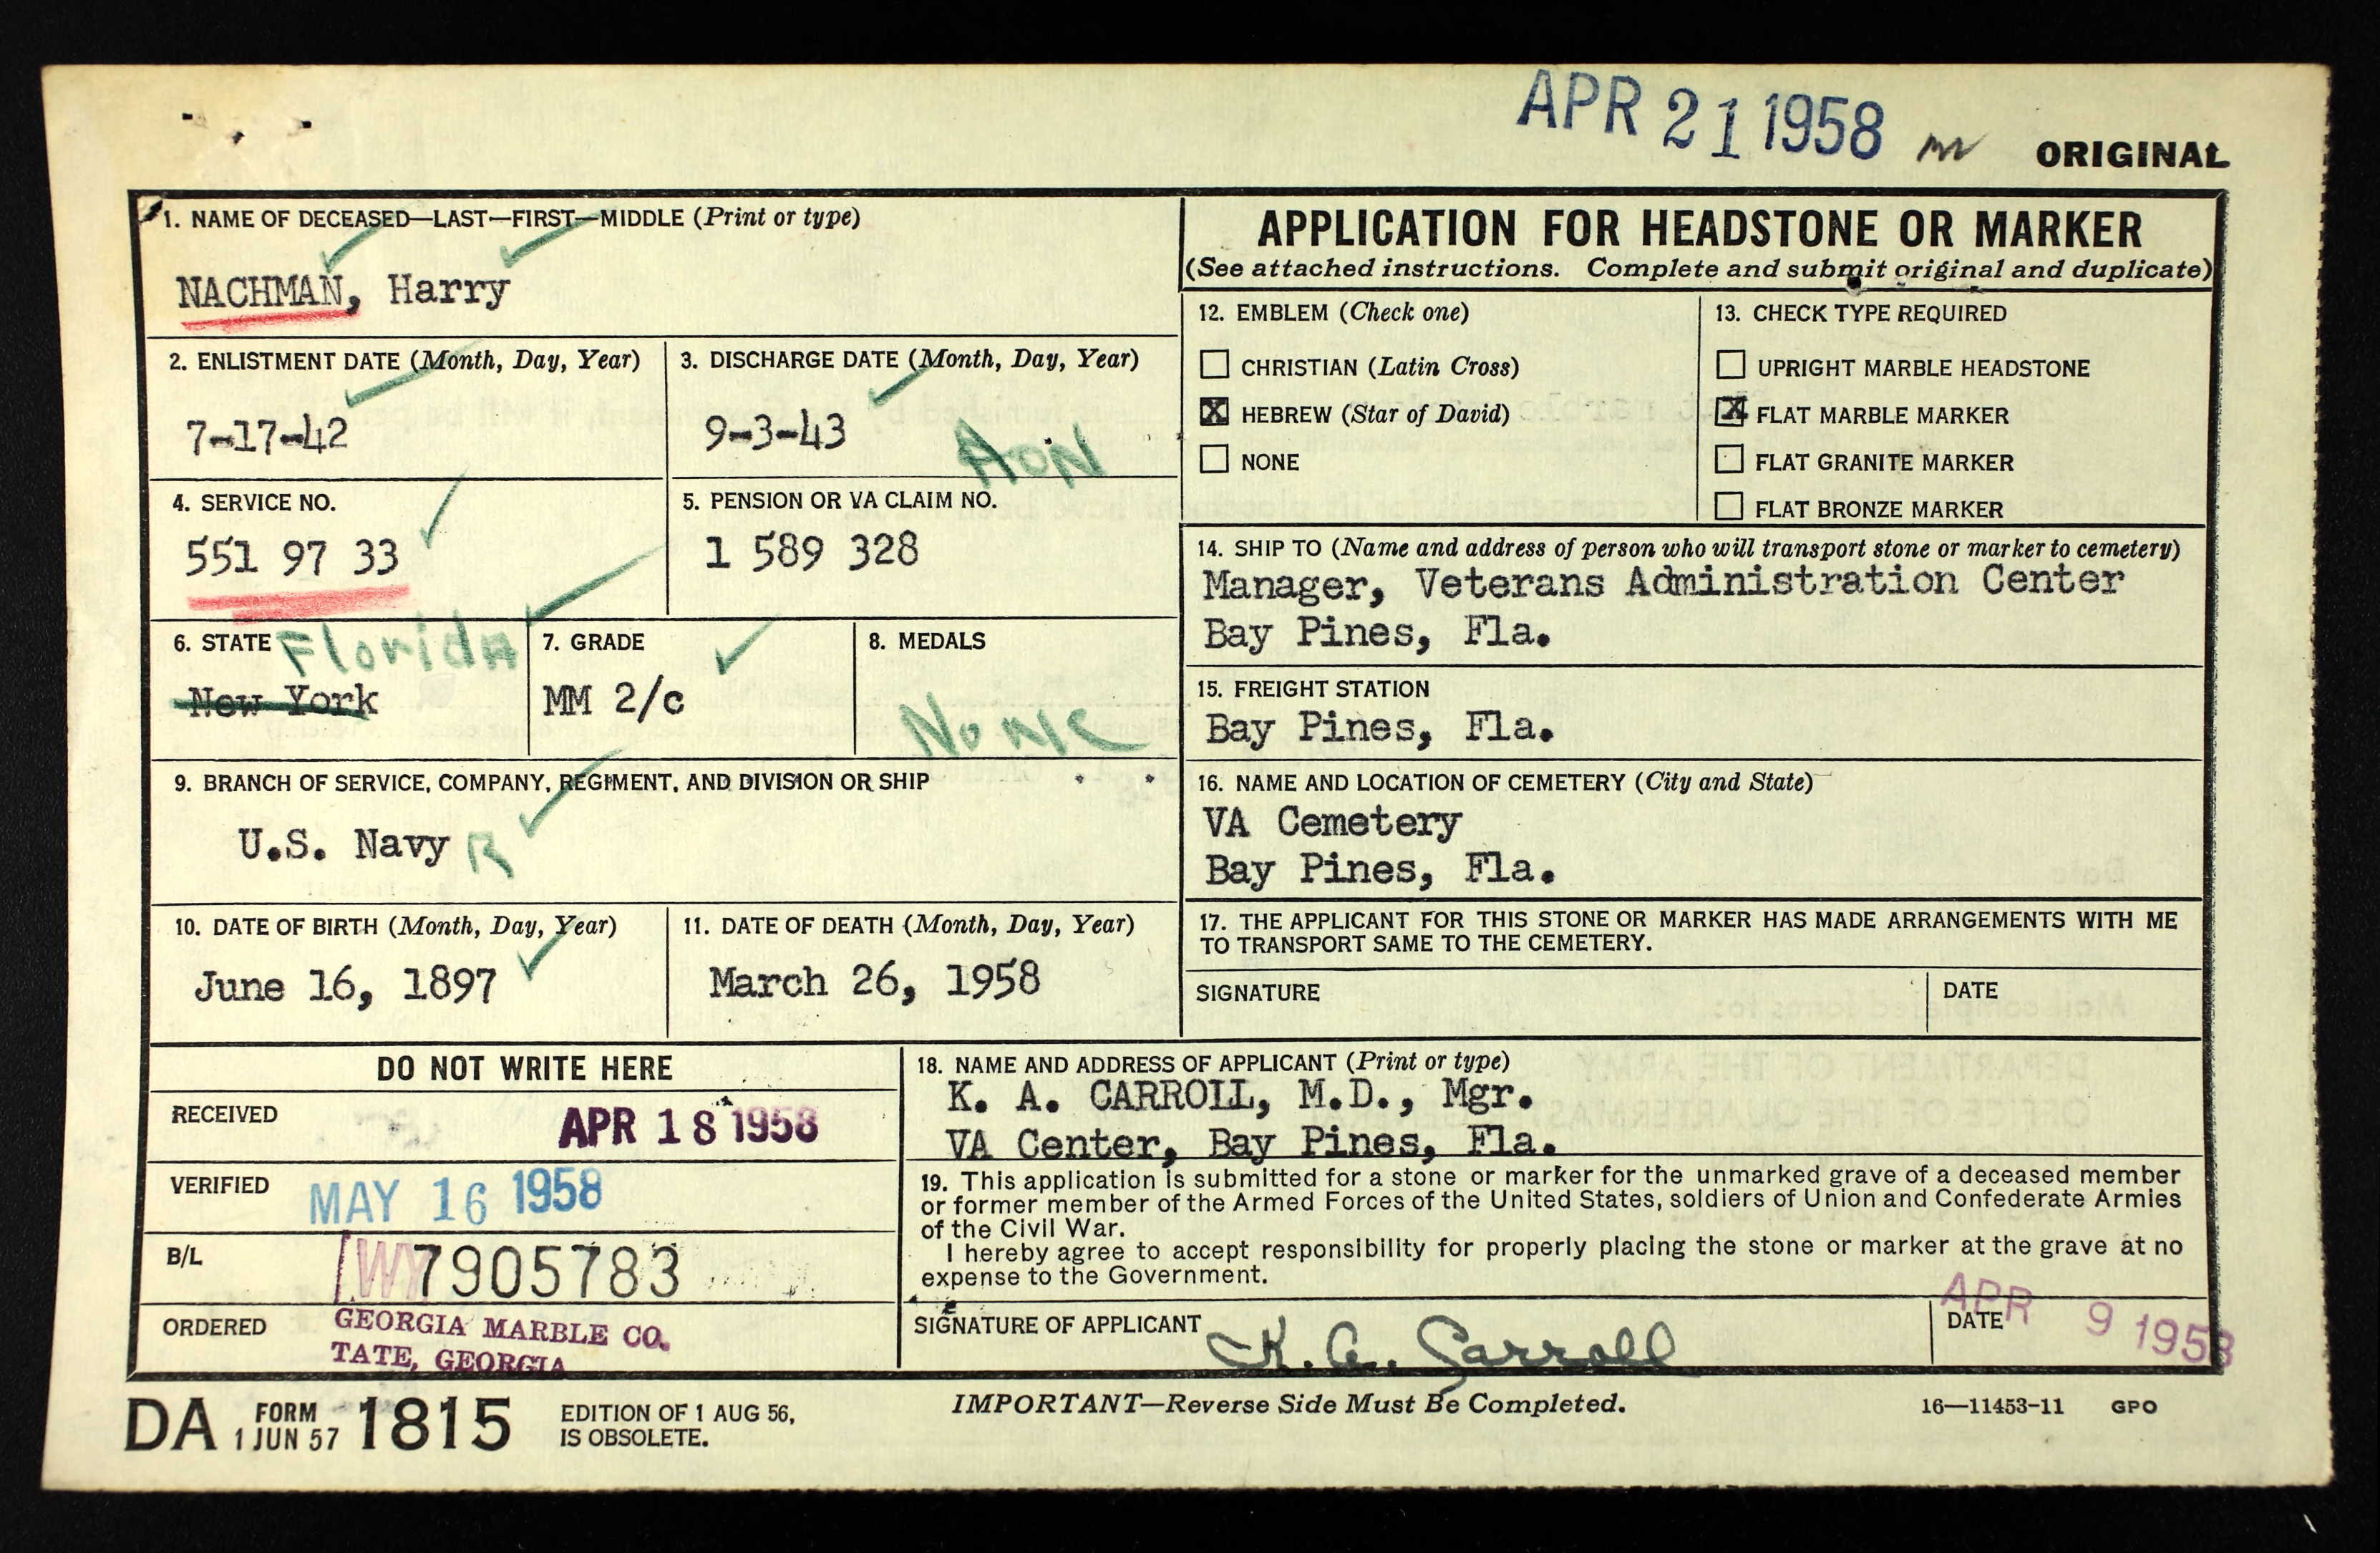 APR 21 1958
ORIGINAL
1. NAME OF DECEASED—LAST—FIRST—MIDDLE (Print or type)
NACHMAN, Harry
2. ENLISTMENT DATE (Month, Day, Year)
7-17-42
3. DISCHARGE DATE (Month, Day, Year)
9-3-43
HON
4. SERVICE NO.
551 97 33
5. PENSION OR VA CLAIM NO.
1 589 328
6. STATE Florida
New York
7. GRADE
MM 2/c
8. MEDALS
None
9. BRANCH OF SERVICE, COMPANY, REGIMENT, AND DIVISION OR SHIP
U.S. Navy R
10. DATE OF BIRTH (Month, Day, Year)
June 16, 1897
11. DATE OF DEATH (Month, Day, Year)
March 26, 1958
APPLICATION FOR HEADSTONE OR MARKER
(See attached instructions. Complete and submit original and duplicate)
12. EMBLEM (Check one)
CHRISTIAN (Latin Cross)
X HEBREW (Star of David)
NONE
13. CHECK TYPE REQUIRED
UPRIGHT MARBLE HEADSTONE
X FLAT MARBLE MARKER
FLAT GRANITE MARKER
FLAT BRONZE MARKER
14. SHIP TO (Name and address of person who will transport stone or marker to cemetery)
Manager, Veterans Administration Center
Bay Pines, Fla.
15. FREIGHT STATION
Bay Pines, Fla.
16. NAME AND LOCATION OF CEMETERY (City and State)
VA Cemetery
Bay Pines, Fla.
17. THE APPLICANT FOR THIS STONE OR MARKER HAS MADE ARRANGEMENTS WITH ME
TO TRANSPORT SAME TO THE CEMETERY.
SIGNATURE
DATE
DO NOT WRITE HERE
RECEIVED APR 18 1958
VERIFIED MAY 16 1958
B/L WY7905783
ORDERED GEORGIA MARBLE CO.
TATE, GEORGIA
18. NAME AND ADDRESS OF APPLICANT (Print or type)
K. A. CARROLL, M.D., Mgr.
VA Center, Bay Pines, Fla.
19. This application is submitted for a stone or marker for the unmarked grave of a deceased member
or former member of the Armed Forces of the United States, soldiers of Union and Confederate Armies
of the Civil War.
I hereby agree to accept responsibility for properly placing the stone or marker at the grave at no
expense to the Government.
SIGNATURE OF APPLICANT K. A. Carroll
DATE APR 9 1958
DA FORM 1 JUN 57 1815
EDITION OF 1 AUG 56,
IS OBSOLETE.
IMPORTANT—Reverse Side Must Be Completed.
16—11453-11 GPO